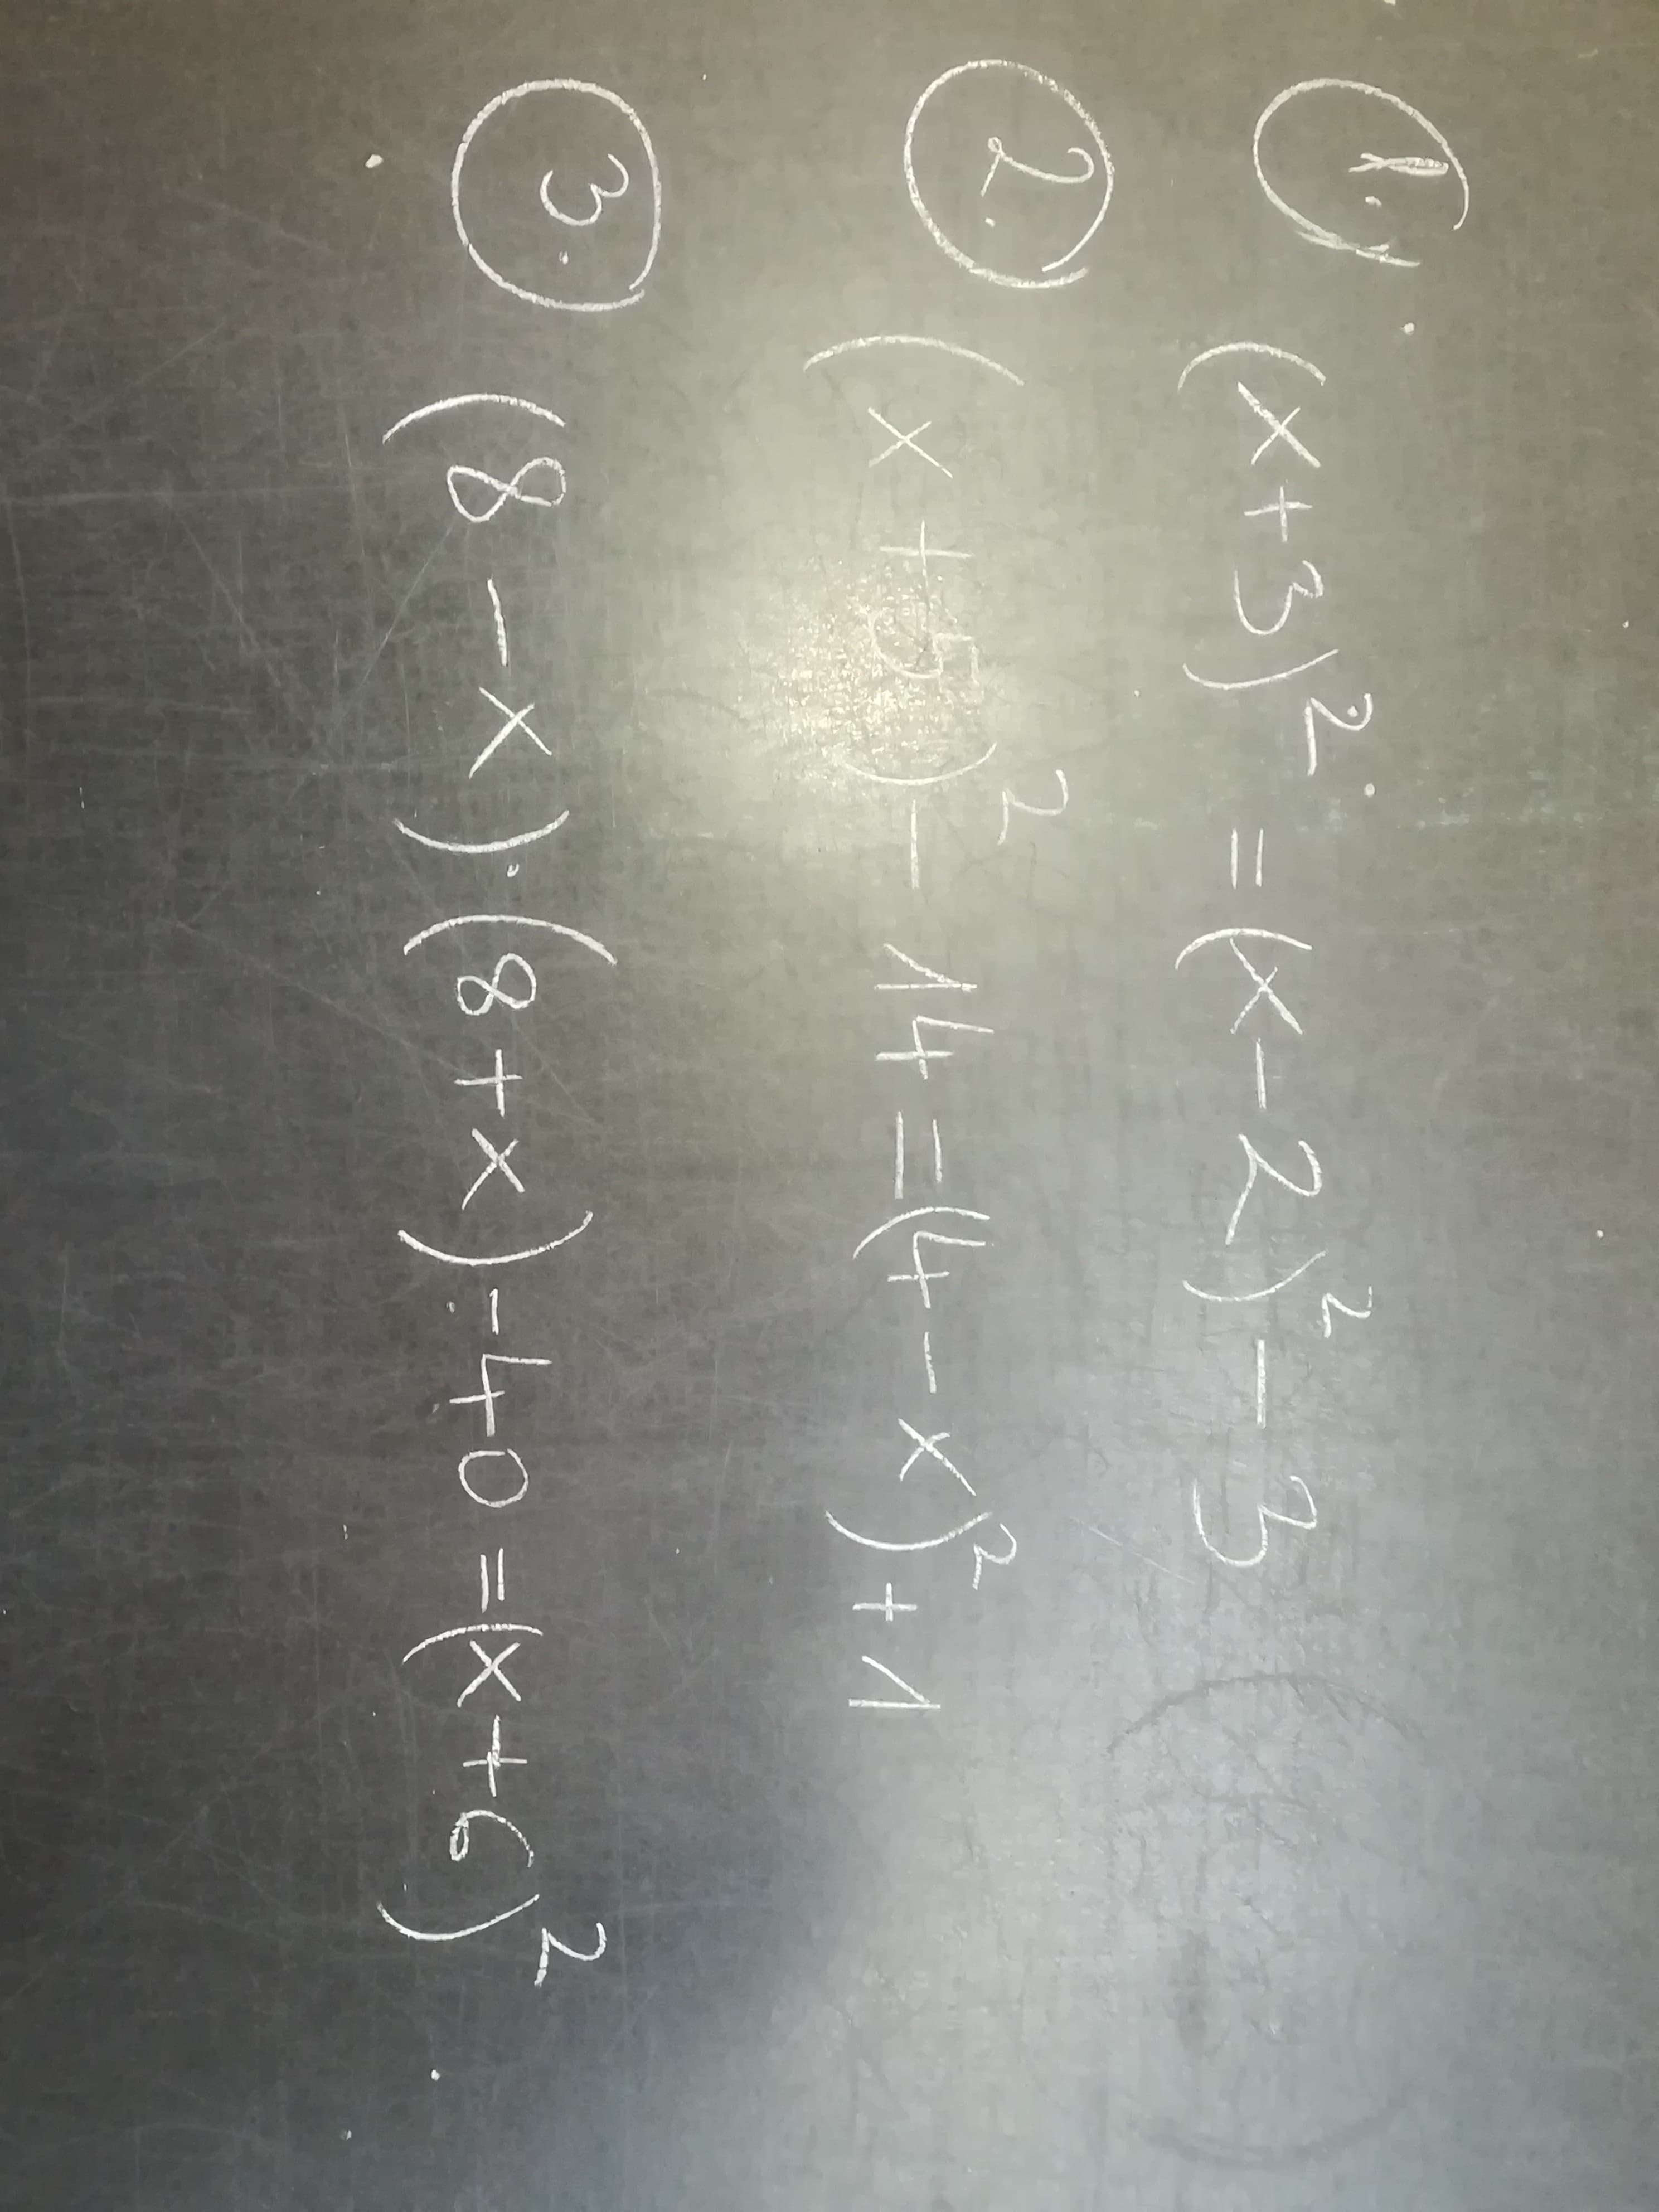 1. (x+3)² = (x-2)² - 3
2. (x+5)² - 14 = (4-x)² + 1
3. (8-x)·(8+x) - 40 = (x+6)²